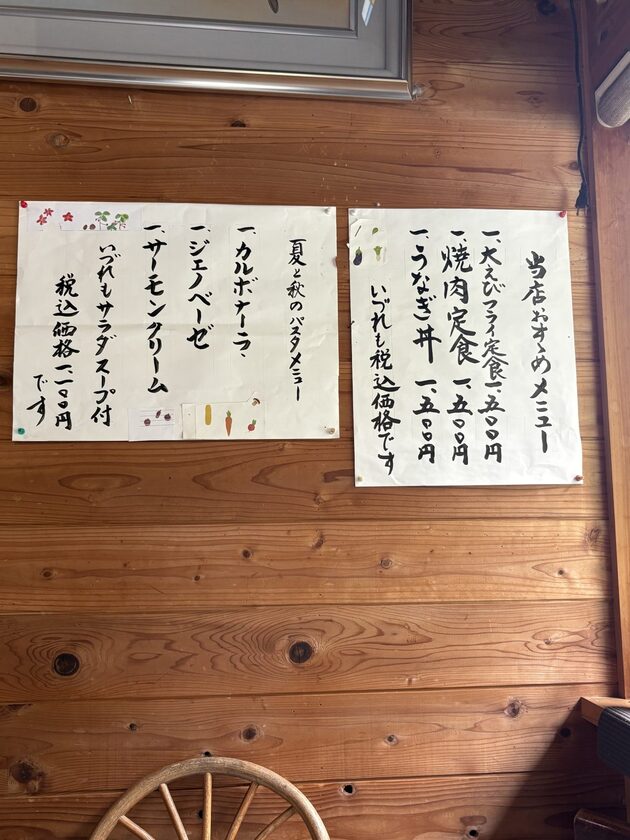 当店おすすめメニュー
一、大えびフライ定食 一、五〇〇円
一、焼肉定食 一、五〇〇円
一、うなぎ丼 一、五〇〇円
いづれも税込価格です
夏と秋のパスタメニュー
一、カルボナーラ、
一、ジェノベーゼ
一、サーモンクリーム
いづれもサラダスープ付
税込価格一、一〇〇円
です